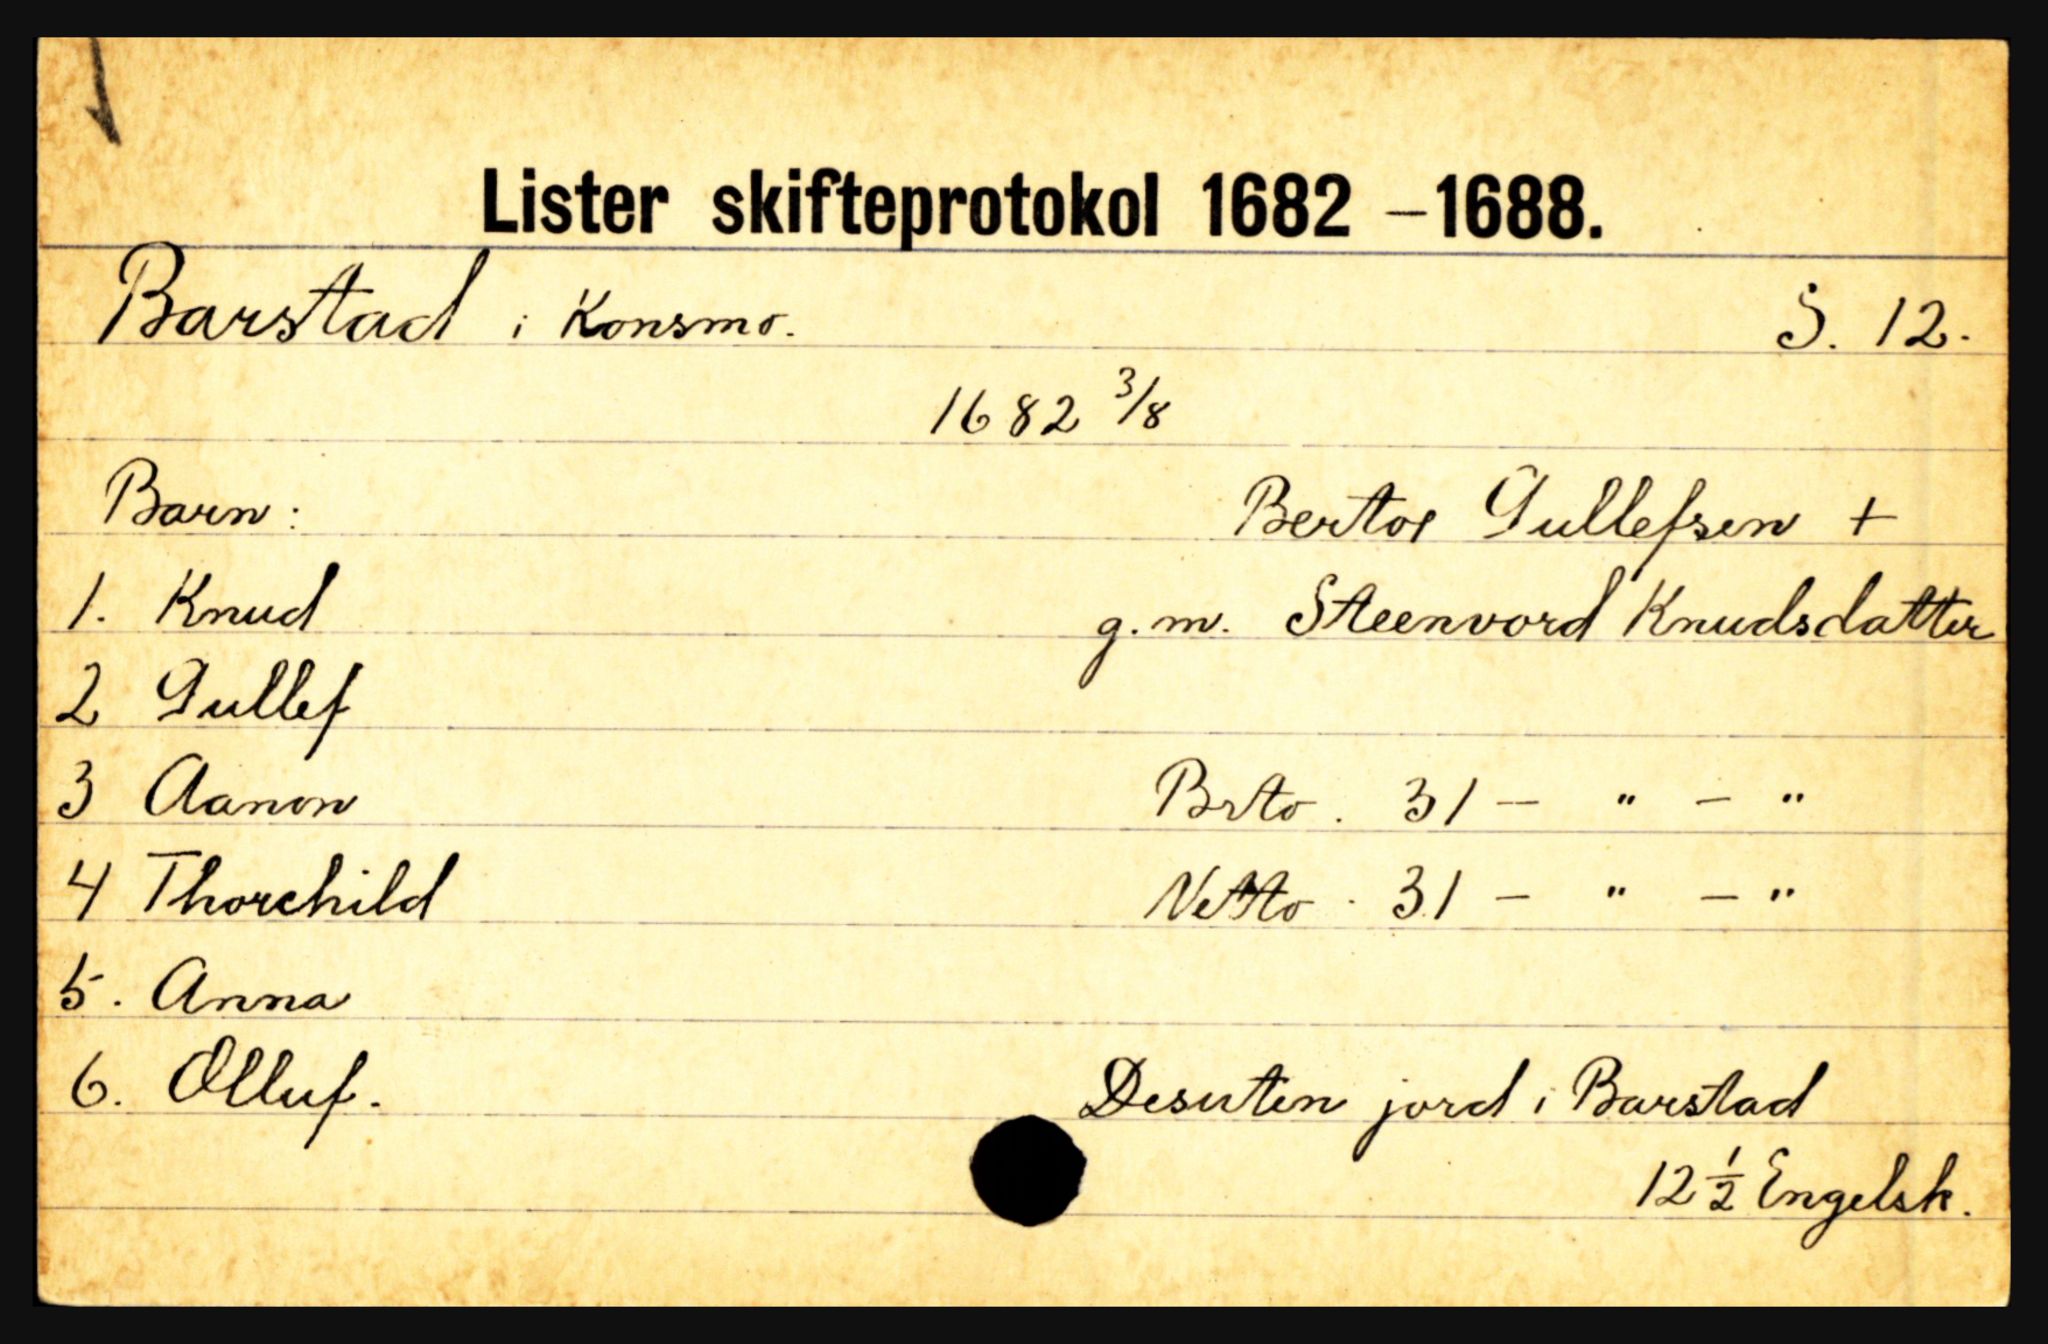 Lister skifteprotokol 1682 – 1688.
Barstad i Konsmo. S. 12.
1682 3/8
Barn: Bertol Gullefsen +
1. Knud g. m. Steenvord Knudsdatter
2 Gullef
3 Aanon Brto. 31 – " – "
4 Thorchild Netto. 31 – " – "
5. Anna
6. Olluf. Desuten jord i Barstad
12 1/2 Engelsk.